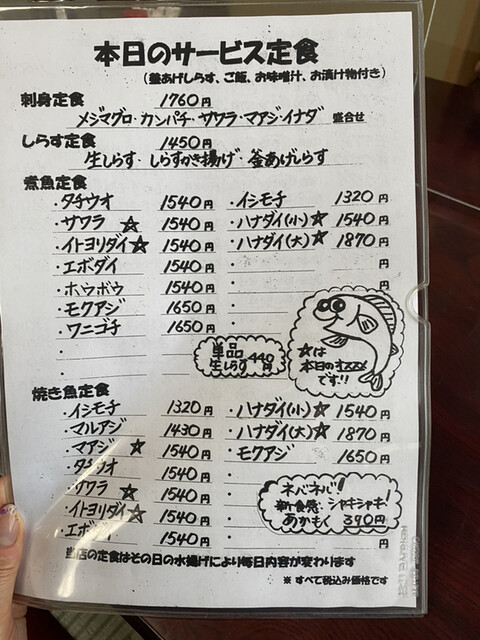 本日のサービス定食
（釜あげしらす、ご飯、お味噌汁、お漬け物付き）
刺身定食 1760円
メジマグロ・カンパチ・サワラ・マアジ・イナダ 盛合せ
しらす定食 1450円
生しらす・しらすかき揚げ・釜あげしらす
煮魚定食
・タチウオ 1540円
・サワラ ☆ 1540円
・イトヨリダイ☆ 1540円
・エボダイ 1540円
・ホウボウ 1540円
・モクアジ 1650円
・ワニゴチ 1650円
・
・
・イシモチ 1320円
・ハナダイ(小)☆ 1540円
・ハナダイ(大)☆ 1870円
・ 円
・ 円
・
単品
生しらす 440円
☆は
本日のオススメ
です!!
焼き魚定食
・イシモチ 1320円
・マルアジ 1430円
・マアジ ☆ 1540円
・タチウオ 1540円
・サワラ ☆ 1540円
・イトヨリダイ☆ 1540円
・エボダイ 1540円
・ハナダイ(小)☆ 1540円
・ハナダイ(大)☆ 1870円
・モクアジ 1650円
・
・
・
・ 円
ネバネバ!
新食感 シャキシャキ!
あかもく 390円
当店の定食はその日の水揚げにより毎日内容が変わります
※ すべて税込み価格です